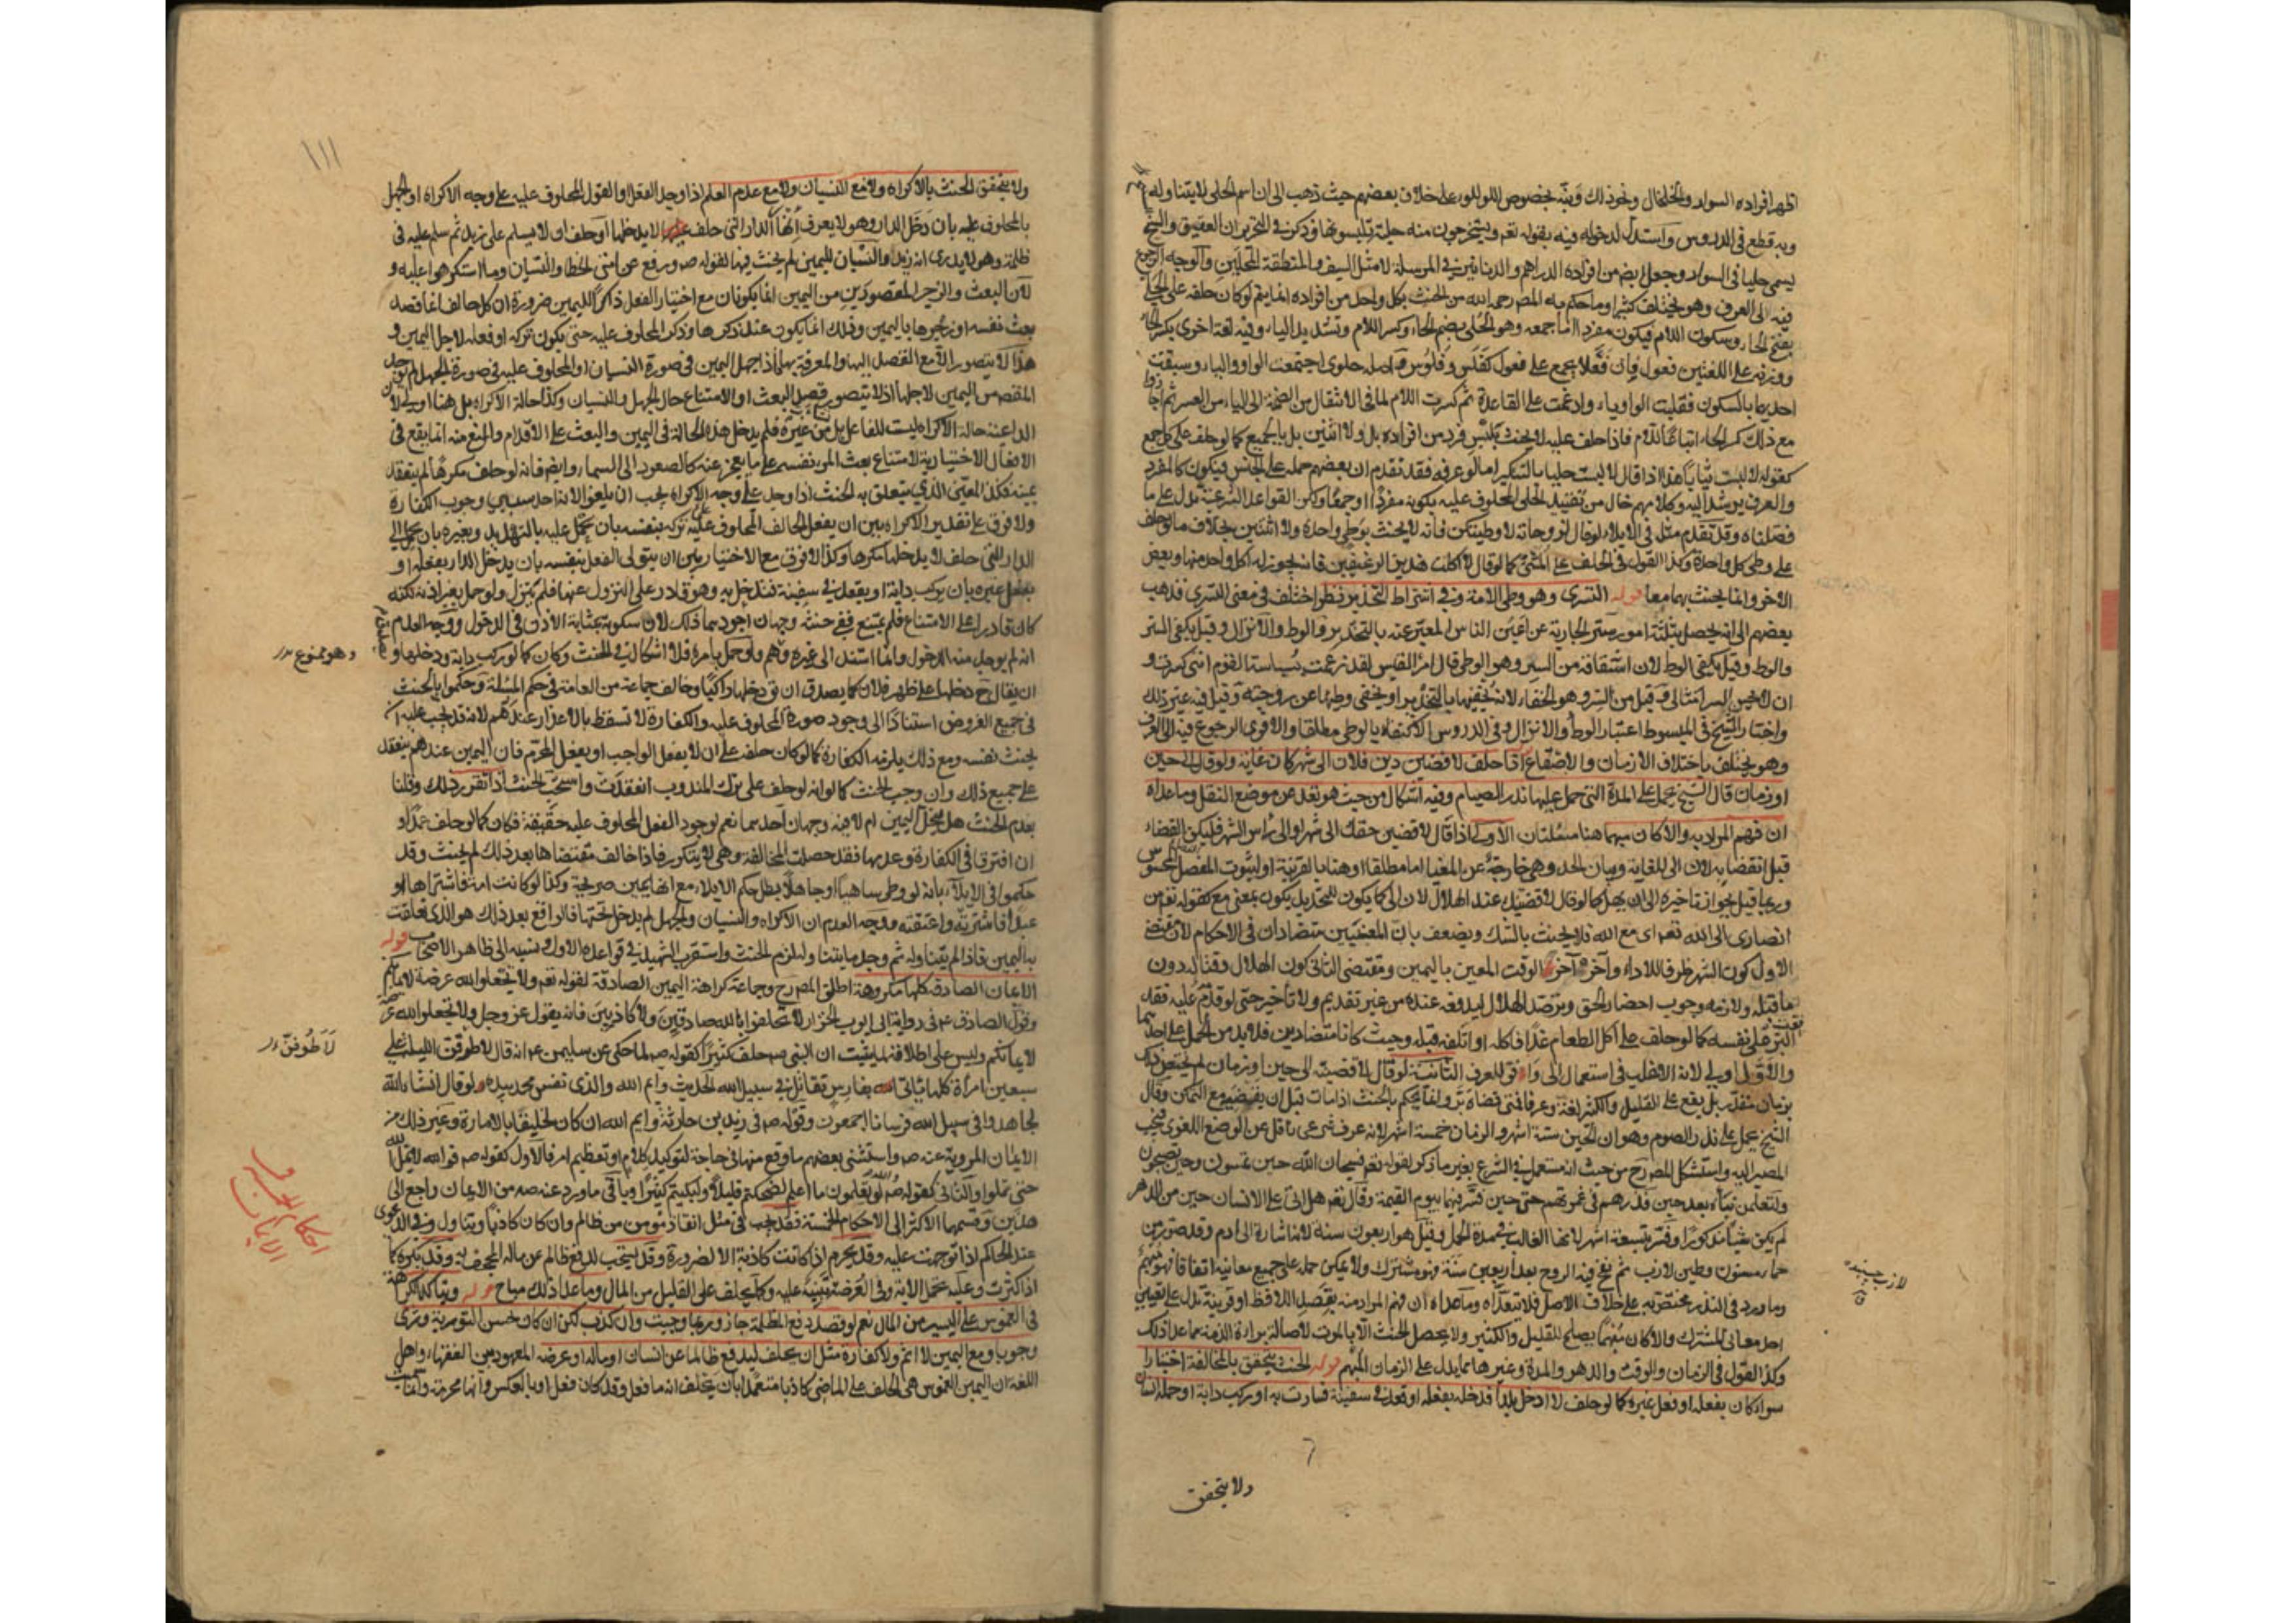 اظهر افراده السوار والخلخال ونحو ذلك ونبّه بخصوص اللؤلؤ على خلاف بعضهم حيث ذهب الى ان اسم الحلي لا يتناوله
وبه قطع في الدروس واستدل لدخوله فيه بقوله تعم وتستخرجون منه حلية تلبسونها وذكر في التحرير ان العقيق والسبج
يسمى حليا في السواد وجعل ايضا من افراده الدراهم والدنانير في المرسلة لا مثل السيف والمنطقة المحلّيين والوجه الرجوع
فيه الى العرف وهو يختلف كثيرا وما حكم به المصر رحمه الله من الحنث بكل واحد من افراده انما يتم لو كان حلفه على الحلي
بفتح الحاء وسكون اللام فيكون مفردا اما جمعه وهو الحُلي بضم الحاء وكسر اللام وتشديد الياء وفيه لغة اخرى بكسر الحاء
ووزنه على اللغتين فعول فان فَعْلا يجمع على فعول كفَلس وفُلوس واصله حلوي اجتمعت الواو والياء وسبقت
احديهما بالسكون فقلبت الواو ياء وادغمت على القاعدة ثم كسرت اللام لما في الانتقال من الضمة الى الياء من العسر ثم اجازوا
مع ذلك كسر الحاء اتباعا للام فاذا حلف عليه لا يحنث بلبس فرد من افراده بل ولا اثنين بل بالجميع كما لو حلف على كل جمع
كقوله لا لبست ثيابا هذا اذا قال لا لبست حليا بالتنكير اما لو عرفه فقد تقدم ان بعضهم حمله على الجنس فيكون كالمفرد
والعرف يرشد اليه وكلامهم خال من تقييد الحلي المحلوف عليه بكونه مفردا او جمعا ولكن القواعد الشرعية تدل على ما
فصلناه وقد تقدم مثله في الايلاء لو قال لزوجاته لا وطيتكن فانه لا يحنث بوطي واحدة ولا اثنتين بخلاف ما لو حلف
على وطي كل واحدة وكذا القول في الحلف على المثنى كما لو قال لا اكلت هذين الرغيفين فانه يجوز له اكل واحد منهما وبعض
الاخر وانما يحنث بهما معا قوله التسرى وهو وطي الامة وفي اشتراط التخدير نظر اختلف في معنى التسرى فذهب
بعضهم الى انه يحصل بثلثة امور ستر الجارية عن اعين الناس المعبّر عنه بالتخدير والوطء والانزال وقيل يكفى الستر
والوط وقيل يكفي الوط لان اشتقاقه من السر وهو الوطي قال امرؤ القيس لقد زعمت بسباسة القوم انني كبرت و
ان لا يحسن السر امثالى وقيل من السر وهو الخفاء لانه يخفيها بالتخدير او يخفى وطيها عن زوجته وقيل فيه غير ذلك
واختار الشيخ في المبسوط اعتبار الوط والانزال وفي الدروس الاكتفاء بالوطي مطلقا والاقوى الرجوع فيه الى العرف
وهو يختلف باختلاف الازمان والاصقاع اذا حلف لاقضين دين فلان الى شهر كان غاية ولو قال الى حين
او زمان قال الشيخ يحمل على المدة التى حمل عليها نذر الصيام وفيه اشكال من حيث هو تعد عن موضع النقل وما عداه
ان فهم المراد به والا كان مبهما هنا مسئلتان الاولى اذا قال لاقضين حقك الى شهر او الى رأس الشهر فليكن القضاء
قبل انقضائه لان الى للغاية وبيان الحد وهى خارجة عن المغيا اما مطلقا او هنا بالقرينة او لثبوت المفصل المحسوس
وربما قيل بجواز تاخيره الى ان يهل كما لو قال لاقضينك عند الهلال لان الى كما يكون للتحديد يكون بمعنى مع كقوله تعم من
انصارى الى الله تعم اى مع الله فلا يحنث بالشك ويضعف بان المعنيين متضادان في الاحكام لان مقتضى
الاول كون الشهر ظرفا للاداء وآخره آخر الوقت المعين باليمين ومقتضى الثانى كون الهلال وقتا له دون
ما قبله ولازمه وجوب احضار الحق وترصد الهلال ليدفعه عنده من غير تقديم ولا تأخير حتى لو قدم عليه فقد
البر على نفسه كما لو حلف على اكل الطعام غدا فاكله او اتلفه قبله وحيث كانا متضادين فلا بد من الحمل على احدهما
والاول اولى لانه الاغلب في استعمال الى واوفق للعرف الثانية لو قال لاقضينه الى حين او زمان لم يختص ذلك
بزمان مقدر بل يقع على القليل والكثير لغة وعرفا فمتى قضاه بر وانما يحكم بالحنث اذا مات قبل ان يقضيه مع التمكن وقال
الشيخ يحمل على نذر الصوم وهو ان الحين ستة اشهر والزمان خمسة اشهر لانه عرف شرعى ناقل عن الوضع اللغوى فيجب
المصير اليه واستشكل المصر رح من حيث انه مستعمل في الشرع بغير ما ذكر لقوله تعم فسبحان الله حين تمسون وحين تصبحون
ولتعلمن نبأه بعد حين فذرهم في غمرتهم حتى حين فسر فيهما بيوم القيمة وقال تعم هل اتى على الانسان حين من الدهر
لم يكن شيئا مذكورا وفسر بتسعة اشهر لانها الغالب في مدة الحمل وقيل هو اربعون سنة لانه اشارة الى ادم وقد صور من
حماء مسنون وطين لازب ثم نفخ فيه الروح بعد اربعين سنة فهو مشترك ولا يمكن حمله على جميع معانيه اتفاقا فهو مبهم
وما ورد في النذر مختص به على خلاف الاصل فلا تتعداه وما عداه ان فهم المراد منه بقصد اللافظ او قرينة تدل على تعيين
احد معانى المشترك والا كان مبهما يصلح للقليل والكثير ولا يحصل الحنث الا بالموت لاصالة براءة الذمة مما عدا ذلك
وكذا القول في الزمان والوقت والدهر والمدة وغيرها مما يدل على الزمان المبهم قوله الحنث يتحقق بالمخالفة اختيارا
سواء كان بفعله او فعل غيره كما لو حلف لا ادخل بلدا فدخله بفعله او قعد في سفينة فسارت به او ركب دابة او حمله انسان
ولا يتحقق
لازب چسبنده
١١١
ولا يتحقق الحنث بالاكراه ولا مع النسيان ولا مع عدم العلم اذا وجد الفعل او القول المحلوف عليه على وجه الاكراه او الجهل
بالمحلوف عليه بان دخل الدار وهو لا يعرف انها الدار التى حلف لا يدخلها او حلف ان لا يسلم على زيد ثم سلم عليه في
ظلمة وهو لا يدرى انه زيد والنسيان لليمين لم يحنث فيها لقوله ص رفع عن امتى الخطا والنسيان وما استكرهوا عليه و
لان البعث والزجر المقصودين من اليمين انما يكونان مع اختيار الفعل ذاكرا لليمين ضرورة ان كل حالف انما قصد
بعث نفسه او زجرها باليمين وذلك انما يكون عند ذكرها وذكر المحلوف عليه حتى يكون تركه او فعله لاجل اليمين و
هذا لا يتصور الا مع القصد اليها والمعرفة بها فاذا جهل اليمين في صورة النسيان او المحلوف عليه في صورة الجهل لم يوجد
المقصد من اليمين لاجلها اذ لا يتصور قصد البعث او الامتناع حال الجهل والنسيان وكذا حالة الاكراه بل هنا اولى لان
الداعية حالة الاكراه ليست للفاعل بل من غيره فلم يدخل هذه الحالة في اليمين والبعث على الاقدام والمنع منه انما يقع في
الافعال الاختيارية لامتناع بعث المرء نفسه على ما يعجز عنه كالصعود الى السماء وايضا فانه لو حلف مكرها لم ينعقد
يمينه فكذا المعنى الذي يتعلق به الحنث اذا وجد على وجه الاكراه يجب ان يلغو لانه احد سببي وجوب الكفارة
ولا فرق على تقدير الاكراه بين ان يفعل الحالف المحلوف على تركه بنفسه بان يحمل عليه بالتهديد وبغيره بان يحمل الى
الدار التى حلف لا يدخلها مكرها وكذا لا فرق مع الاختيار بين ان يتولى الفعل بنفسه بان يدخل الدار بفعله او
بفعل غيره بان يركب دابة او يقعد في سفينة فتدخل به وهو قادر على النزول عنها فلم ينزل ولو حمل بغير اذنه لكنه
كان قادرا على الامتناع فلم يمتنع ففي حنثه وجهان اجودهما ذلك لان سكوته بمثابة الاذن في الدخول ووجه العدم
انه لم يوجد منه الدخول وانما استند الى غيره وهم ولو حمل بامره فلا اشكال في الحنث وكان كما لو ركب دابة ودخلها و
ان يقال ح دخلها على ظهر فلان كما يصدق ان يق دخلها راكبا وخالف جماعة من العامة في حكم المسئلة وحكموا بالحنث
في جميع الفروض استنادا الى وجود صورة المحلوف عليه والكفارة لا تسقط بالاعذار عندهم لانه قد يجب عليه ان
يحنث نفسه ومع ذلك يلزمه الكفارة كما لو كان حلف على ان لا يفعل الواجب او يفعل المحرم فان اليمين عندهم ينعقد
على جميع ذلك وان وجب الحنث كما لو انه لو حلف على ترك المندوب انعقدت واستحب الحنث اذا تقرر ذلك وقلنا
بعدم الحنث هل ينحل اليمين ام لا فيه وجهان احدهما نعم لوجود الفعل المحلوف عليه حقيقة فكان كما لو حلف عمدا و
ان افترقا في الكفارة وعدمها فقد حصلت المخالفة وهى لا يتكرر فاذا خالف مقتضاها بعد ذلك لم يحنث وقد
حكموا في الايلاء بانه لو وطى ساهيا او جاهلا بطل حكم الايلاء مع انها يمين صريحة وكذا لو كانت امة فاشتراها او
عبدا فاشترته واعتقته ووجه العدم ان الاكراه والنسيان والجهل لم يدخل تحتها فالواقع بعد ذلك هو الذى تعلقت
به اليمين فاذا لم يتناوله ثم وجد ما يتناوله لزم الحنث واستقرب الشهيد في قواعده الاول ونسبه الى ظاهر الاصحاب قوله
الايمان الصادقة كلها مكروهة اطلق المصر رح وجماعة كراهة اليمين الصادقة لقوله تعم ولا تجعلوا الله عرضة لايمانكم
وقول الصادق ع في رواية ابى ايوب الخزاز لا تحلفوا بالله صادقين ولا كاذبين فانه يقول عز وجل ولا تجعلوا الله عرضة
لايمانكم وليس على اطلاقه لما يثبت ان النبى ص حلف كثيرا كقوله ص لما حكى عن سليمن ع انه قال لاطوفن الليلة على
سبعين امرأة كلها تاتى بفارس يقاتل في سبيل الله الحديث وايم الله والذى نفس محمد بيده لو قال انشاء الله
لجاهدوا في سبيل الله فرسانا اجمعون وقوله ص في زيد بن حارثة وايم الله ان كان لخليقا بالامارة وغير ذلك من
الايمان المروية عنه ص واستثنى بعضهم ما وقع منها في حاجة لتوكيد كلام او تعظيم امر فالاول كقوله ص فوالله لا يمل الله
حتى تملوا والثانى كقوله ص والله لو تعلمون ما اعلم لضحكتم قليلا ولبكيتم كثيرا وباقى ما ورد عنه ص من الايمان راجع الى
هذين وقسمها الاكثر الى الاحكام الخمسة فقد يجب في مثل انقاذ مؤمن من ظالم وان كان كاذبا ويتناول وفي الدعوى
عند الحاكم اذا توجهت عليه وقد يحرم اذا كانت كاذبة الا لضرورة وقد يستحب لدفع ظالم عن ماله المجحف به وقد يكره كما
اذا كثرت وعليه تحمل الاية وفي العُرضة تنبيه عليه وكالحلف على القليل من المال وما عدا ذلك مباح قوله ويتاكد الكراهة
في الغموس على اليسير من المال نعم لو قصد دفع المظلمة جاز وربما وجبت وان كذب لكن ان كان يحسن التورية ورى
وجوبا ومع اليمين لا اثم ولا كفارة مثل ان يحلف ليدفع ظالما عن انسان او ماله او عرضه المعهود من الفقهاء واهل
اللغة ان اليمين الغموس هى الحلف على الماضى كاذبا متعمدا بان يحلف انه ما فعل وقد كان فعل او بالعكس وانها محرمة
وهو ممنوع
لَأَطُوفَنَّ